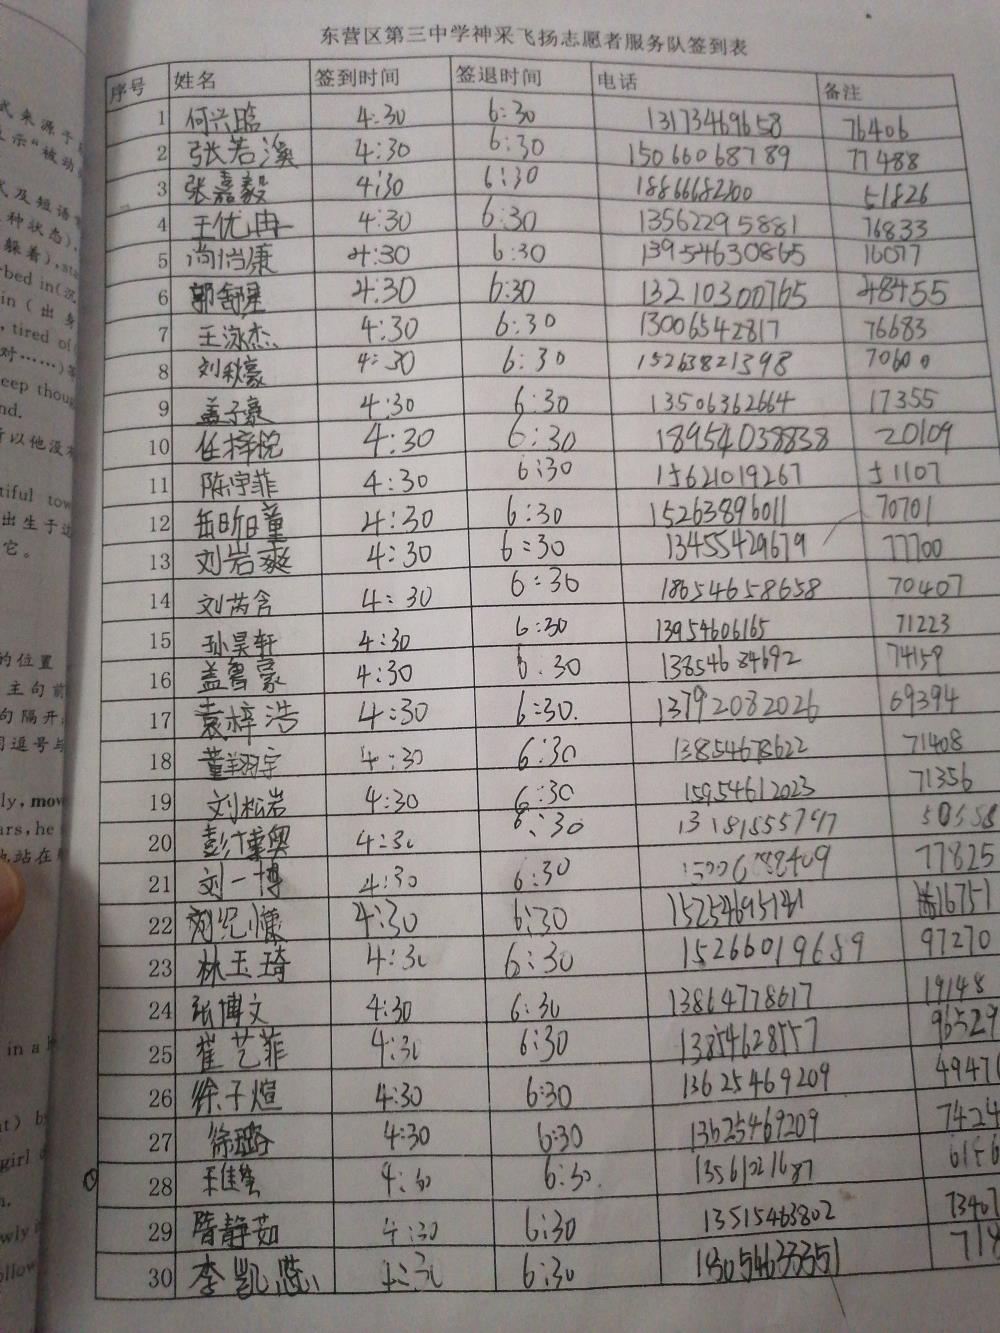 东营区第三中学神采飞扬志愿者服务队签到表
序号 姓名 签到时间 签退时间 电话 备注
1 何兴临 4:30 6:30 13173469658 76406
2 张若溪 4:30 6:30 15066068789 77488
3 张嘉毅 4:30 6:30 18866682200 51826
4 王优冉 4:30 6:30 13562295881 76833
5 尚恺康 4:30 6:30 13954630865 16077
6 郭舒星 4:30 6:30 13210300765 48455
7 王泳杰 4:30 6:30 13006542817 76683
8 刘秋豪 4:30 6:30 15263821398 70600
9 盖子豪 4:30 6:30 13506362664 17355
10 任梓悦 4:30 6:30 18954038838 20109
11 陈宇菲 4:30 6:30 15621019267 51107
12 岳昕童 4:30 6:30 15263896011 70701
13 刘岩爽 4:30 6:30 13455429679 77700
14 刘芮含 4:30 6:30 18654658658 70407
15 孙昊轩 4:30 6:30 13954606165 71223
16 盖鲁豪 4:30 6:30 13854684692 74159
17 袁梓浩 4:30 6:30 13792082026 69394
18 董翔宇 4:30 6:30 13854678622 71408
19 刘松岩 4:30 6:30 15954612023 71356
20 彭博奥 4:30 6:30 13181855797
21 刘一博 4:30 6:30 77825
22 4:30 6:30 16751
23 林玉琦 4:30 6:30 15266019659 97270
24 张博文 4:30 6:30 13864778617 19148
25 崔艺菲 4:30 6:30 13854628557 96529
26 徐子煊 4:30 6:30 13625469209 49471
27 徐璐 4:30 6:30 13625469209 7424
28 4:30 6:30 13561021687
29 隋静茹 4:30 6:30 13515463802 73407
30 李凯蕊 4:30 6:30 714